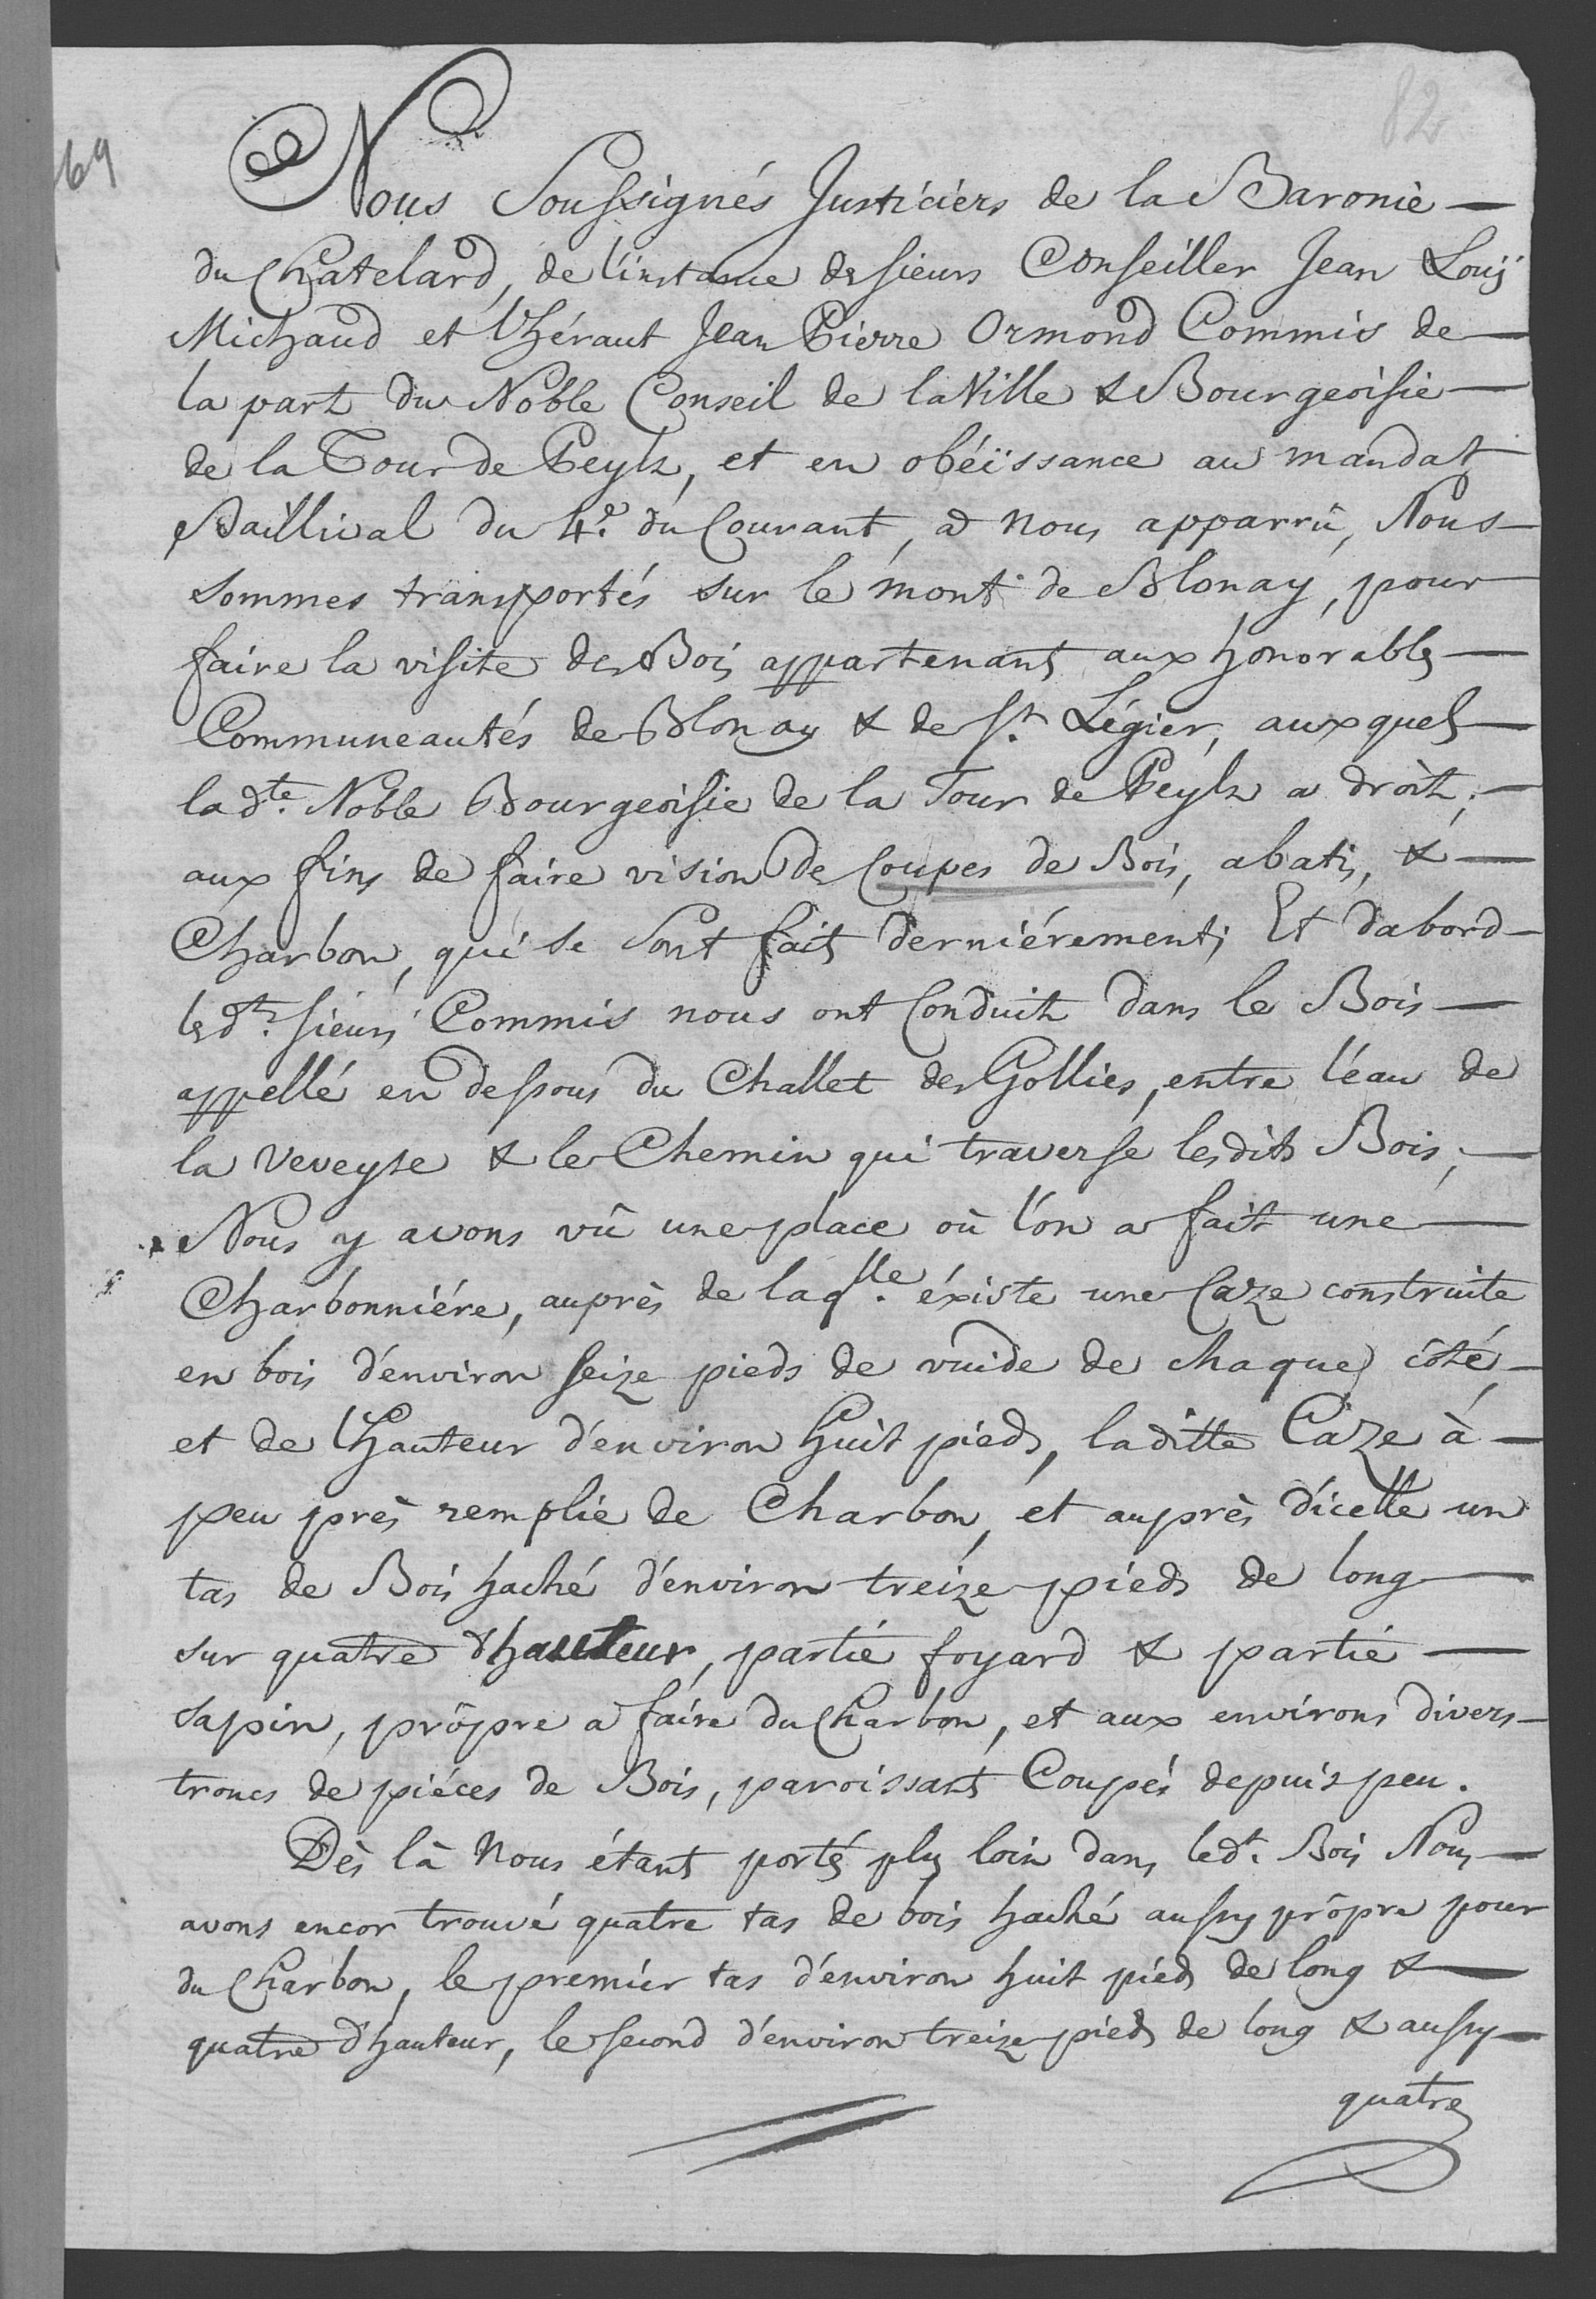 82
69
Nous Soussignés Justiciers de la Baronie —
du Chatelard, de l'instance des sieurs Conseiller Jean Louÿ
Michaud et l'héraut Jean Pierre Ormond Commis de —
la part du Noble Conseil de la Ville & Bourgeoisie —
de la Tour de Peylz, et en obéïssance au mandat
Baillival du 4e. du Courant, à nous apparrû, Nous —
sommes transportés sur le mont de Blonay, pour
faire la visite des Bois appartenants aux honorables —
Communeautés de Blonay & de St. Légier, auxquels —
lad.te Noble Bourgeoisie de la Tour de Peylz a droit, —
aux fins de faire vision des Coupes de Bois, abatis, & —
Charbon, qui se sont faits derniérement; Et dabord —
lesd.ts sieurs Commis nous ont Conduits dans le Bois —
appellé en dessous du Challet des Gollies, entre l'éau de
la Veveyse & le Chemin qui traverse lesdits Bois, —
Nous y avons vû une place où l'on a fait une —
Charbonniére, auprès de laq.lle éxiste une Caze construite
en bois d'environ seize pieds de vuide de chaque côté, —
et de l'Hauteur d'environ huit pieds, laditte Caze à —
peu près remplie de Charbon, et auprès d'icelle un
tas de Bois haché d'environ treize pieds de long —
sur quatre d'hauteur, partie foyard & partie —
sapin, prôpre a faire du Charbon, et aux environs divers —
troncs de piéces de Bois, paroissants Coupés depuis peu.
Dès là Nous étants portés plus loin dans led.t Bois Nous —
avons encor trouvé quatre tas de bois haché aussy prôpre pour
du Charbon, le premier tas d'environ huit pieds de long & —
quatre d'hauteur, le second d'environ treize pieds de long & aussy —
quatre